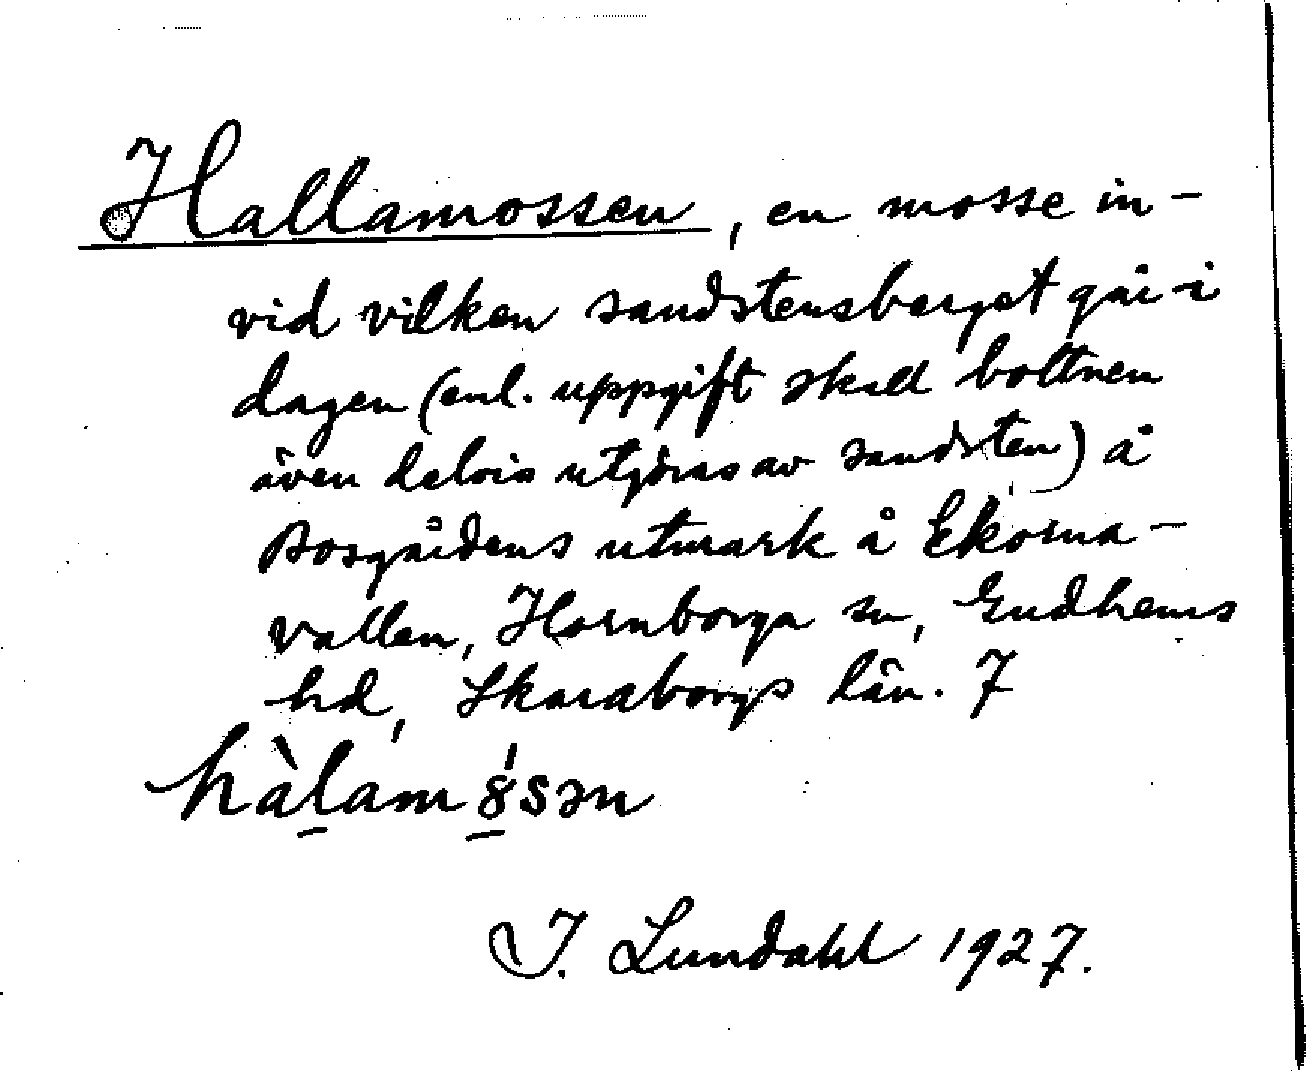 Hallamossen, en mosse in-
vid vilken sandstensberget går i
dagen (enl. uppgift skall bottnen
även delvis utgöras av sandsten) å
Bosgårdens utmark å Ekorna-
vallen, Hornborga sn, Gudhems
hd, Skaraborgs län. 7
hàlamȣ́sən
I. Lundahl 1927.